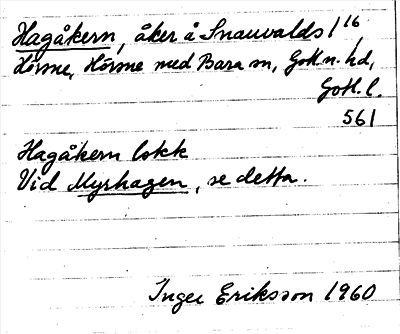 Hagåkern, åker å Snauvalds 1¹⁶,
Hörsne, Hörsne med Bara sn, Gotl.n. hd,
Gotl. l.
561
Hagåkern lokk
Vid Myrhagen, se detta.
Inger Eriksson 1960